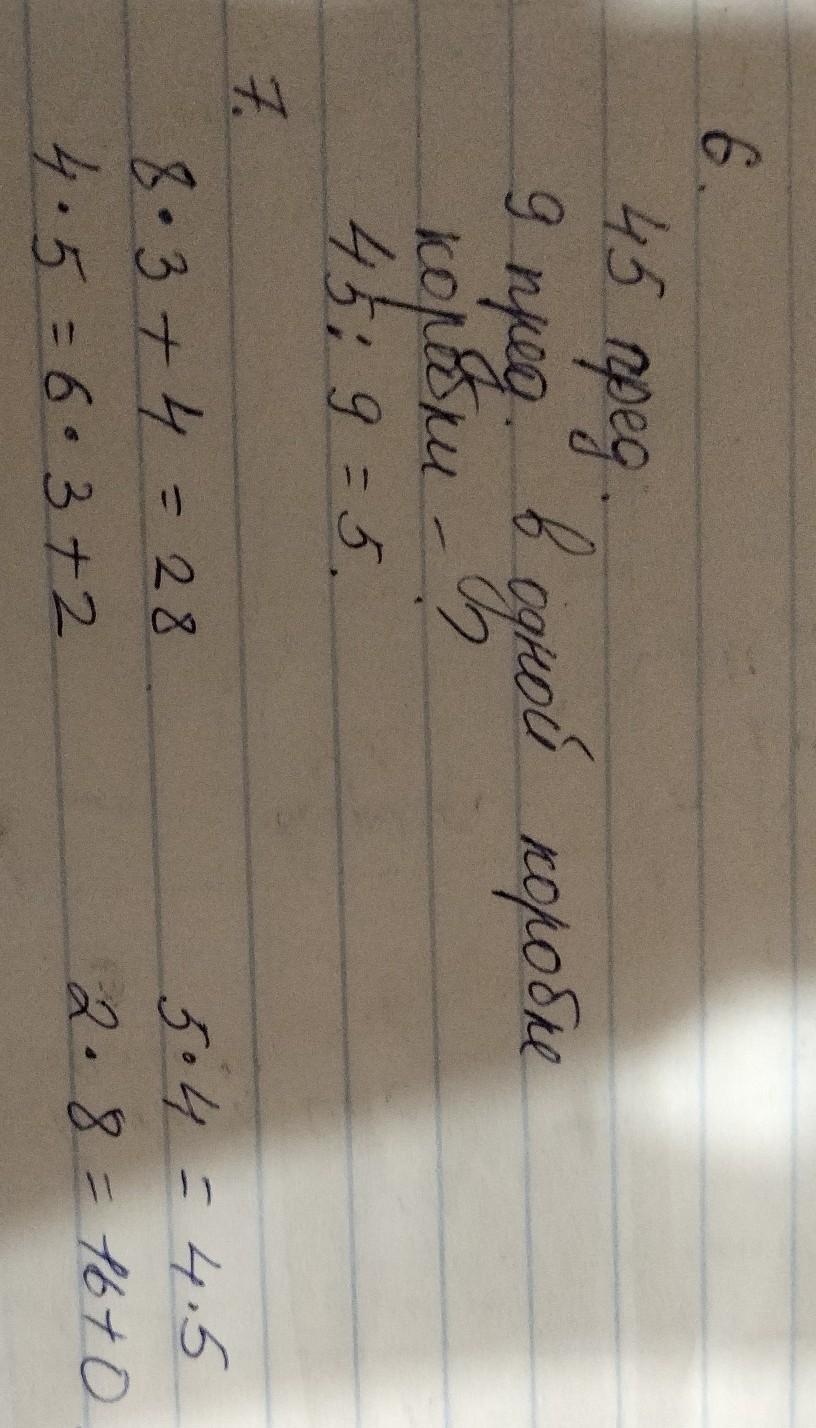 6.
45 пред.
9 пред. в одной коробке
коробки - ?
45 : 9 = 5.
7.
8 · 3 + 4 = 28 5 · 4 = 4 · 5
4 · 5 = 6 · 3 + 2 2 · 8 = 16 + 0